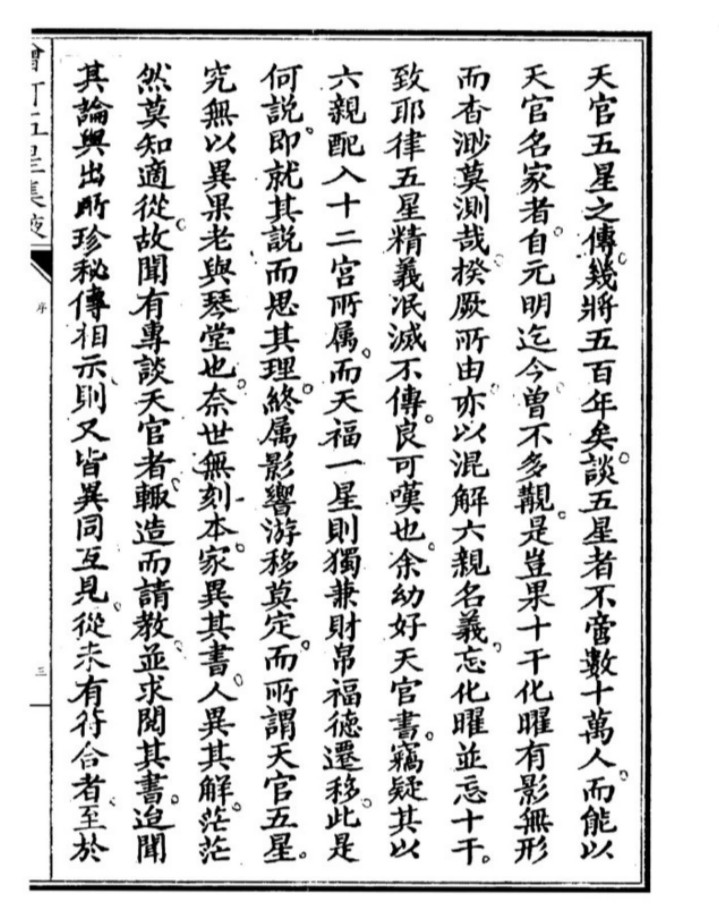 天官五星之傳。幾將五百年矣。談五星者不啻數十萬人。而能以
天官名家者。自元明迄今。曾不多覯。是豈果十干化曜有影無形
而杳渺莫測哉。揆厥所由。亦以混解六親名義。忘化曜並忘十干。
致耶律五星精義泯滅不傳。良可嘆也。余幼好天官書。竊疑其以
六親配入十二宮所属。而天福一星則獨兼財帛福德遷移。此是
何説。即就其説而思其理。終属影響游移莫定。而所謂天官五星。
究無以異果老與琴堂也。奈世無刻本。家異其書。人異其解。茫茫
然莫知適從。故聞有專談天官者。輙造而請教。並求閱其書。迨聞
其論與出所珍秘傳相示。則又皆異同互見。從未有符合者。至於
五星集腋
序
三